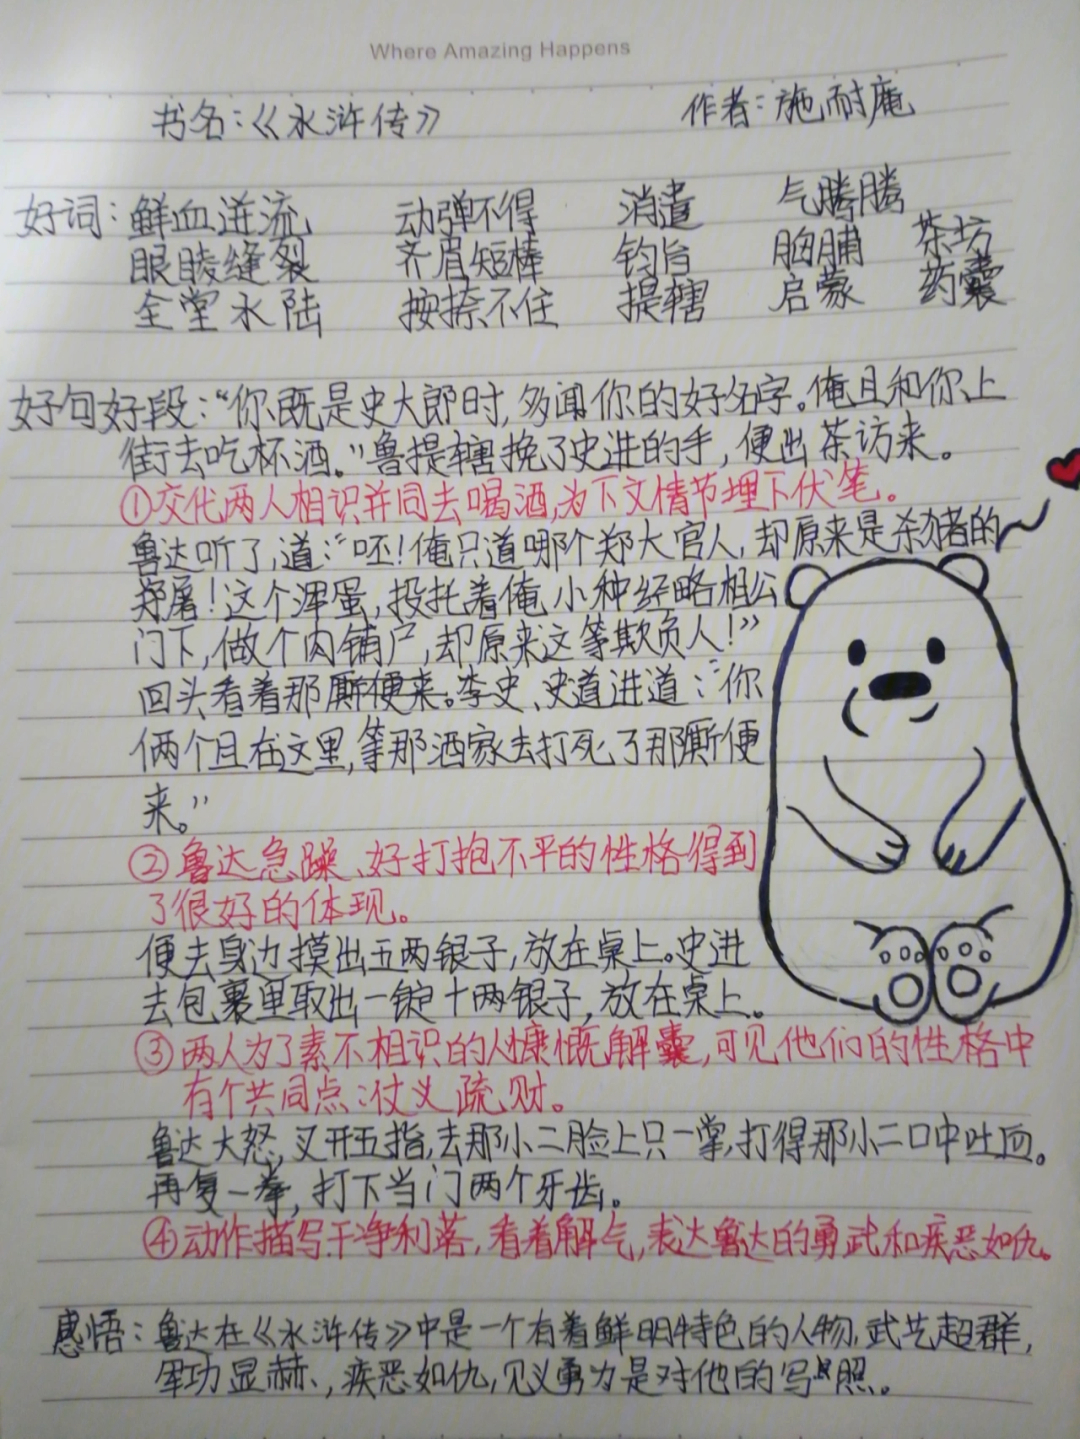 Where Amazing Happens
书名：《水浒传》 作者：施耐庵
好词：鲜血迸流 动弹不得 消遣 气腾腾
眼睖缝裂 齐眉短棒 钧旨 胸脯 茶坊
全堂水陆 按捺不住 提辖 启蒙 药囊
好句好段："你既是史大郎时，多闻你的好名字。俺且和你上
街去吃杯酒。"鲁提辖挽了史进的手，便出茶访来。
①交代两人相识并同去喝酒，为下文情节埋下伏笔。
鲁达听了，道："呸！俺只道哪个郑大官人，却原来是杀猪的
郑屠！这个浑蛋，投托着俺小种经略相公
门下，做个肉铺户，却原来这等欺负人！"
回头看着那厮便来。李史、史道进道："你
俩个且在这里，等那洒家去打死了那厮便
来。"
②鲁达急躁、好打抱不平的性格得到
了很好的体现。
便去身边摸出五两银子，放在桌上。史进
去包裹里取出一锭十两银子，放在桌上。
③两人为了素不相识的人慷慨解囊，可见他们的性格中
有个共同点：仗义疏财。
鲁达大怒，叉开五指，去那小二脸上只一掌，打得那小二口中吐血。
再复一拳，打下当门两个牙齿。
④动作描写干净利落，看着解气，表达鲁达的勇武和疾恶如仇。
感悟：鲁达在《水浒传》中是一个有着鲜明特色的人物，武艺超群，
军功显赫、，疾恶如仇，见义勇为是对他的写照。